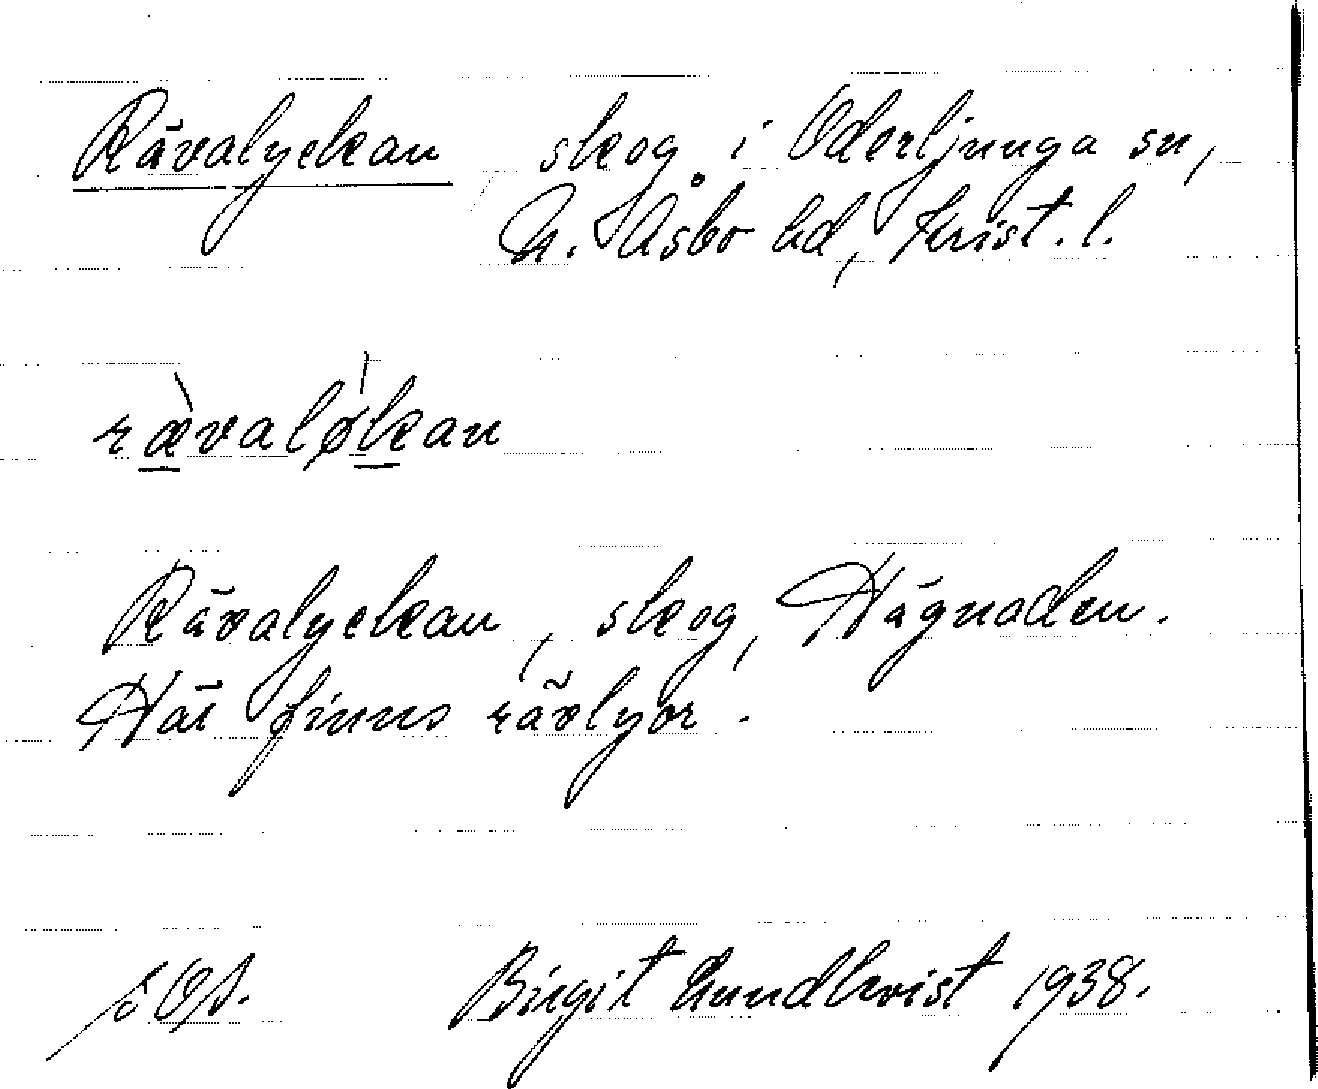 Rävalyckan skog i Oderljunga sn,
N. Åsbo hd, Krist. l.
rævaløkan
Rävalyckan, skog, Hägnaden.
Här finns rävlyor.
Birgit Lundkvist 1938.